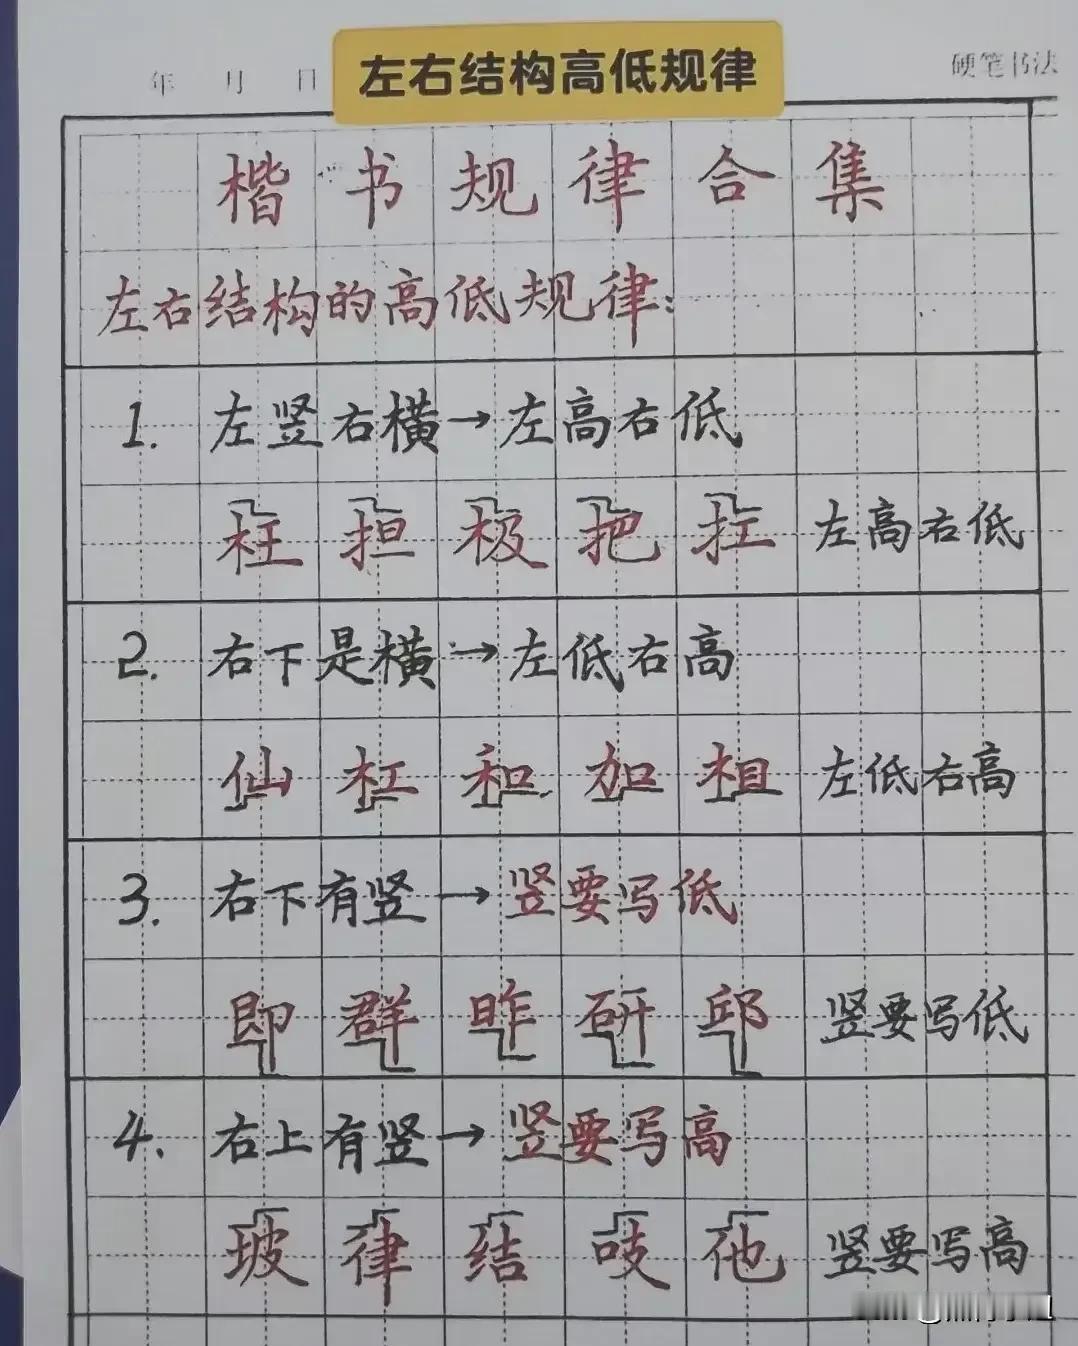 左右结构高低规律
年 月 日
硬笔书法
楷书规律合集
左右结构的高低规律:
1. 左竖右横→左高右低
枉 担 极 把 扛 左高右低
2. 右下是横→左低右高
仙 杠 和 加 相 左低右高
3. 右下有竖→竖要写低
即 群 昨 研 邱 竖要写低
4. 右上有竖→竖要写高
玻 律 结 吱 他 竖要写高